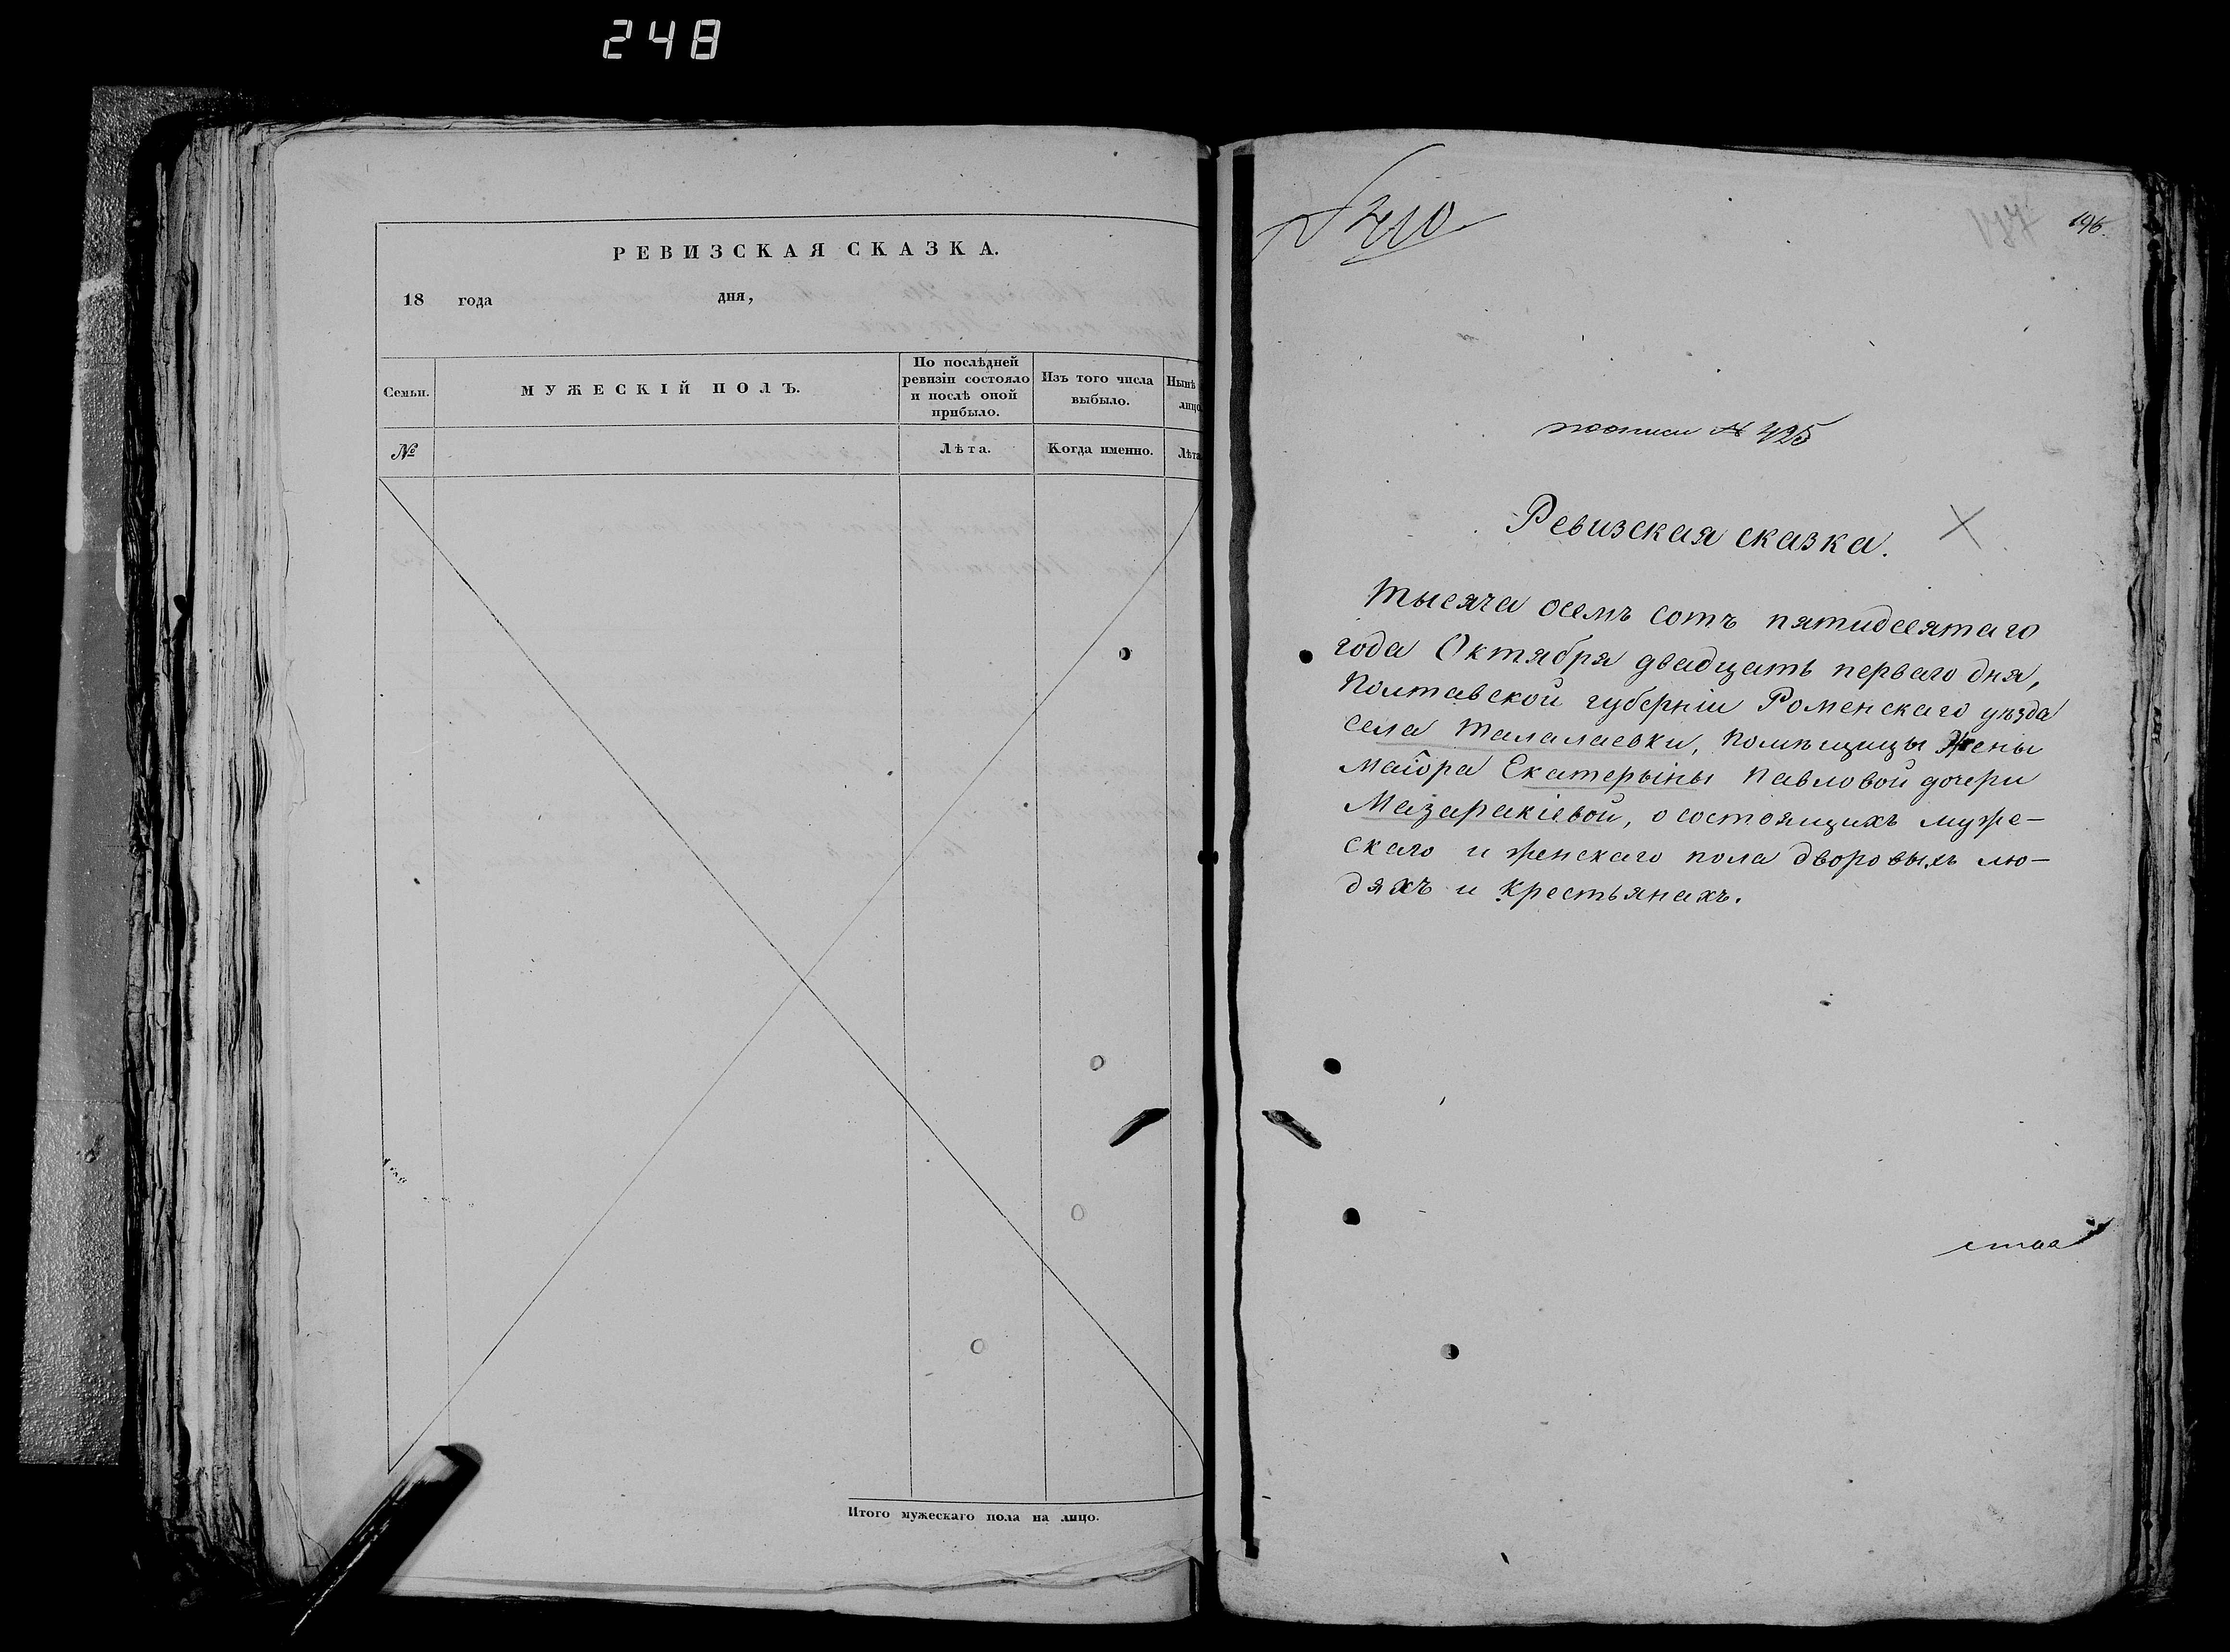 248
РЕВИЗСКАЯ СКАЗКА.
18 года дня,
Семьи.
МУЖЕСКІЙ ПОЛЪ.
По послѣдней
ревизіи состояло
и послѣ оной
прибыло.
Изъ того числа
выбыло.
Нынѣ
лицо.
№
Лѣта.
Когда именно.
Лѣта
Итого мужескаго пола на лицо.
№ 410
137
196.
№ 425
Ревизская сказка.
Тысяча осемъ сотъ пятидесятаго
года Октября двадцать перваго дня,
Полтавской губерніи Роменскаго уѣзда
села Талалаевки, помѣщицы Жены
Маіора Екатерыны Павловой дочери
Мазаракіевой, о состоящихъ муже-
скаго и женскаго пола дворовыхъ лю-
дяхъ и крестьянахъ.